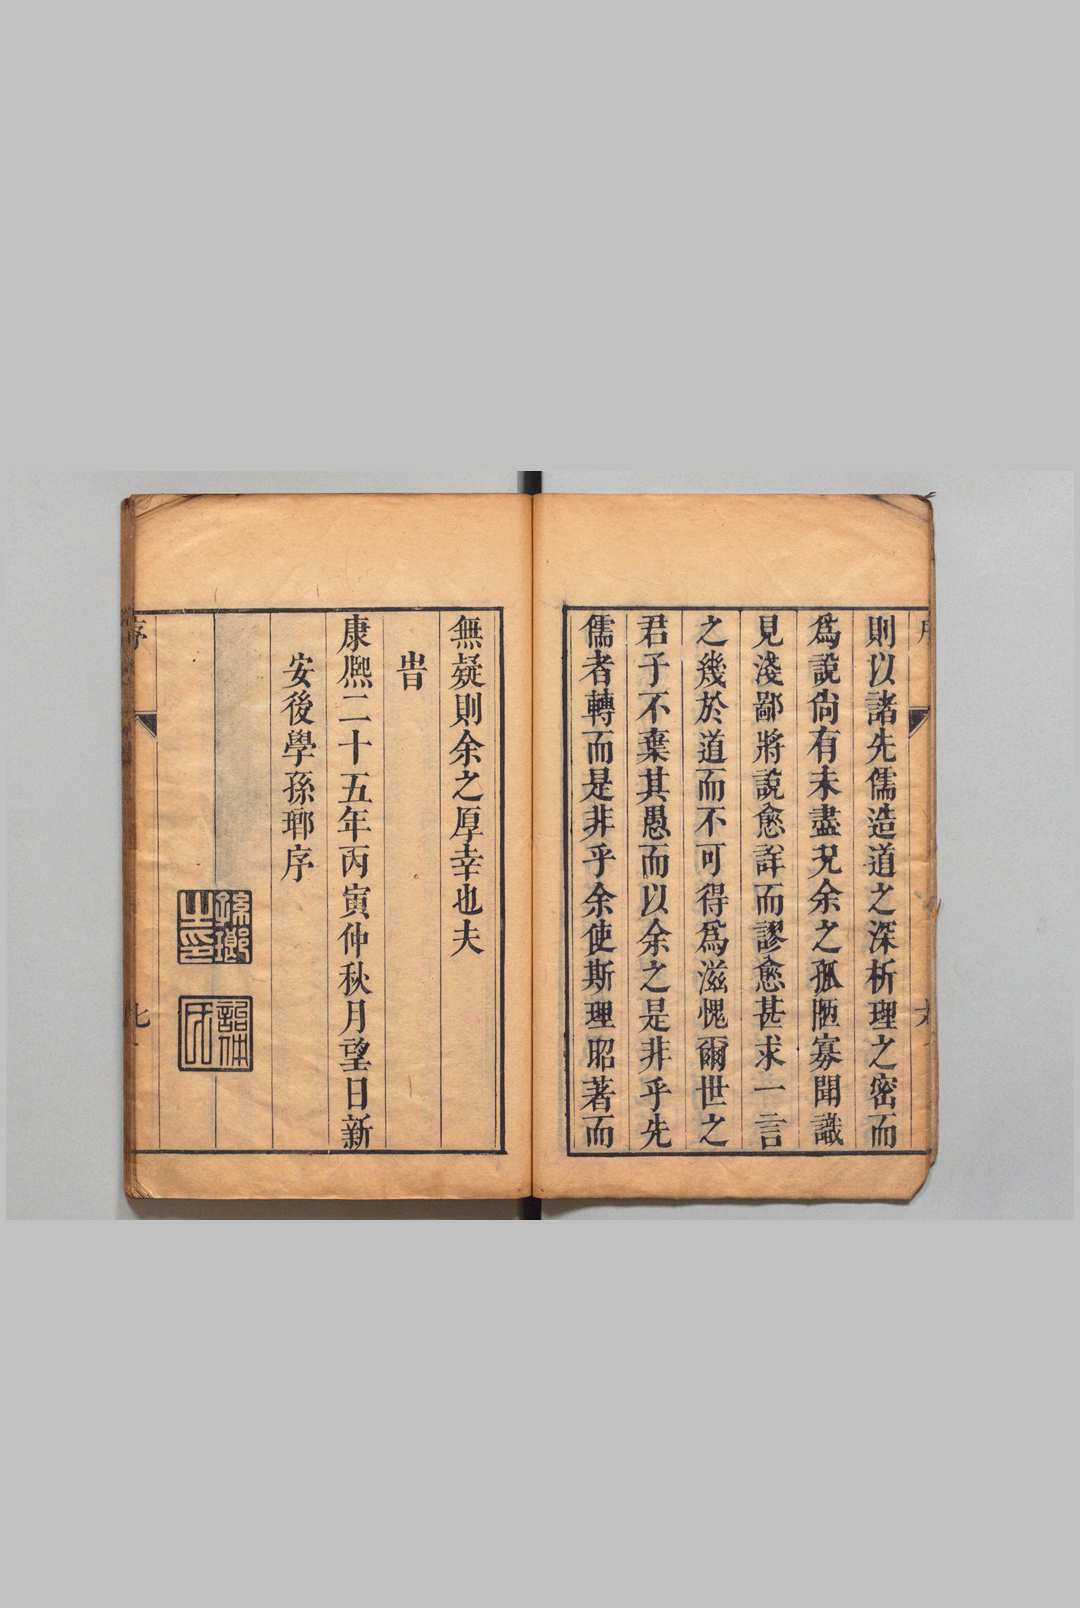 則以諸先儒造道之深析理之密而
爲說尙有未盡況余之孤陋寡聞識
見淺鄙將說愈詳而謬愈甚求一言
之幾於道而不可得爲滋愧爾世之
君子不棄其愚而以余之是非乎先
儒者轉而是非乎余使斯理昭著而
無疑則余之厚幸也夫
旹
康熈二十五年丙寅仲秋月望日新
安後學孫瑯序
孫瑯之印
序
七